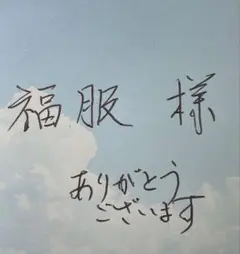 福服 様
ありがとう
ございます